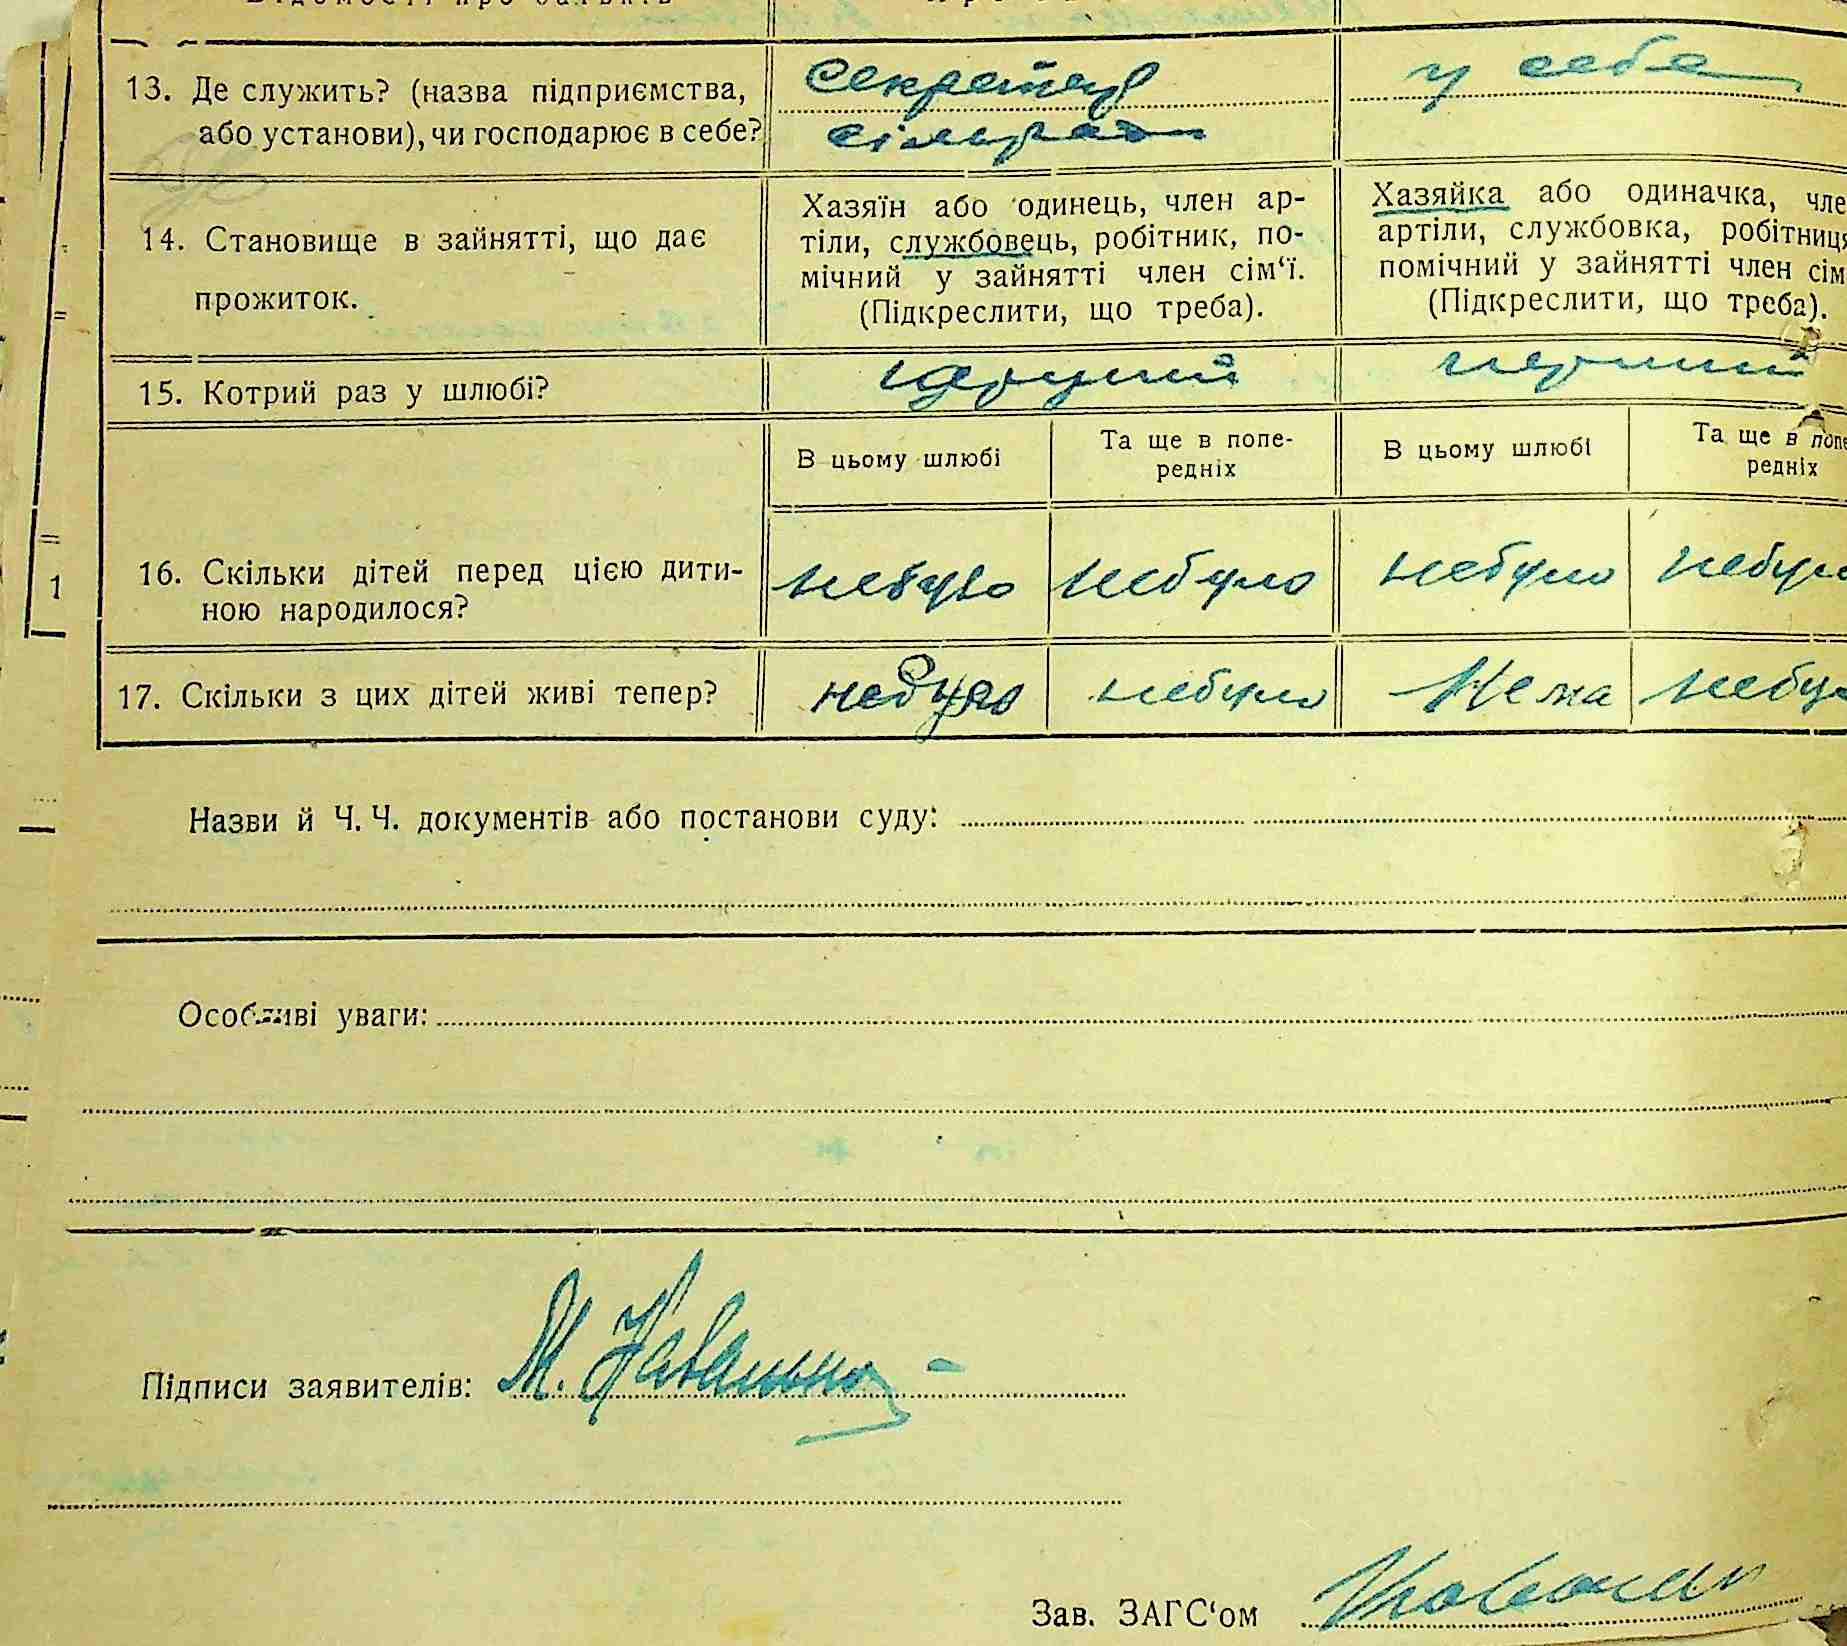 13. Де служить? (назва підприємства, або установи), чи господарює в себе?
секретар
сільради
у себе
14. Становище в зайнятті, що дає прожиток.
Хазяїн або одинець, член ар-
тіли, службовець, робітник, по-
мічний у зайнятті член сім‘ї.
(Підкреслити, що треба).
Хазяйка або одиначка, чле
артіли, службовка, робітниця
помічний у зайнятті член сім
(Підкреслити, що треба).
15. Котрий раз у шлюбі?
другий
перший
В цьому шлюбі
Та ще в попе-
редніх
В цьому шлюбі
Та ще в попе
редніх
16. Скільки дітей перед цією дити-
ною народилося?
небуло
небуло
небуло
небуло
17. Скільки з цих дітей живі тепер?
небуло
небуло
Нема
небул
1
Назви й Ч. Ч. документів або постанови суду:
Особливі уваги:
Підписи заявителів: М.
Зав. ЗАГС‘ом